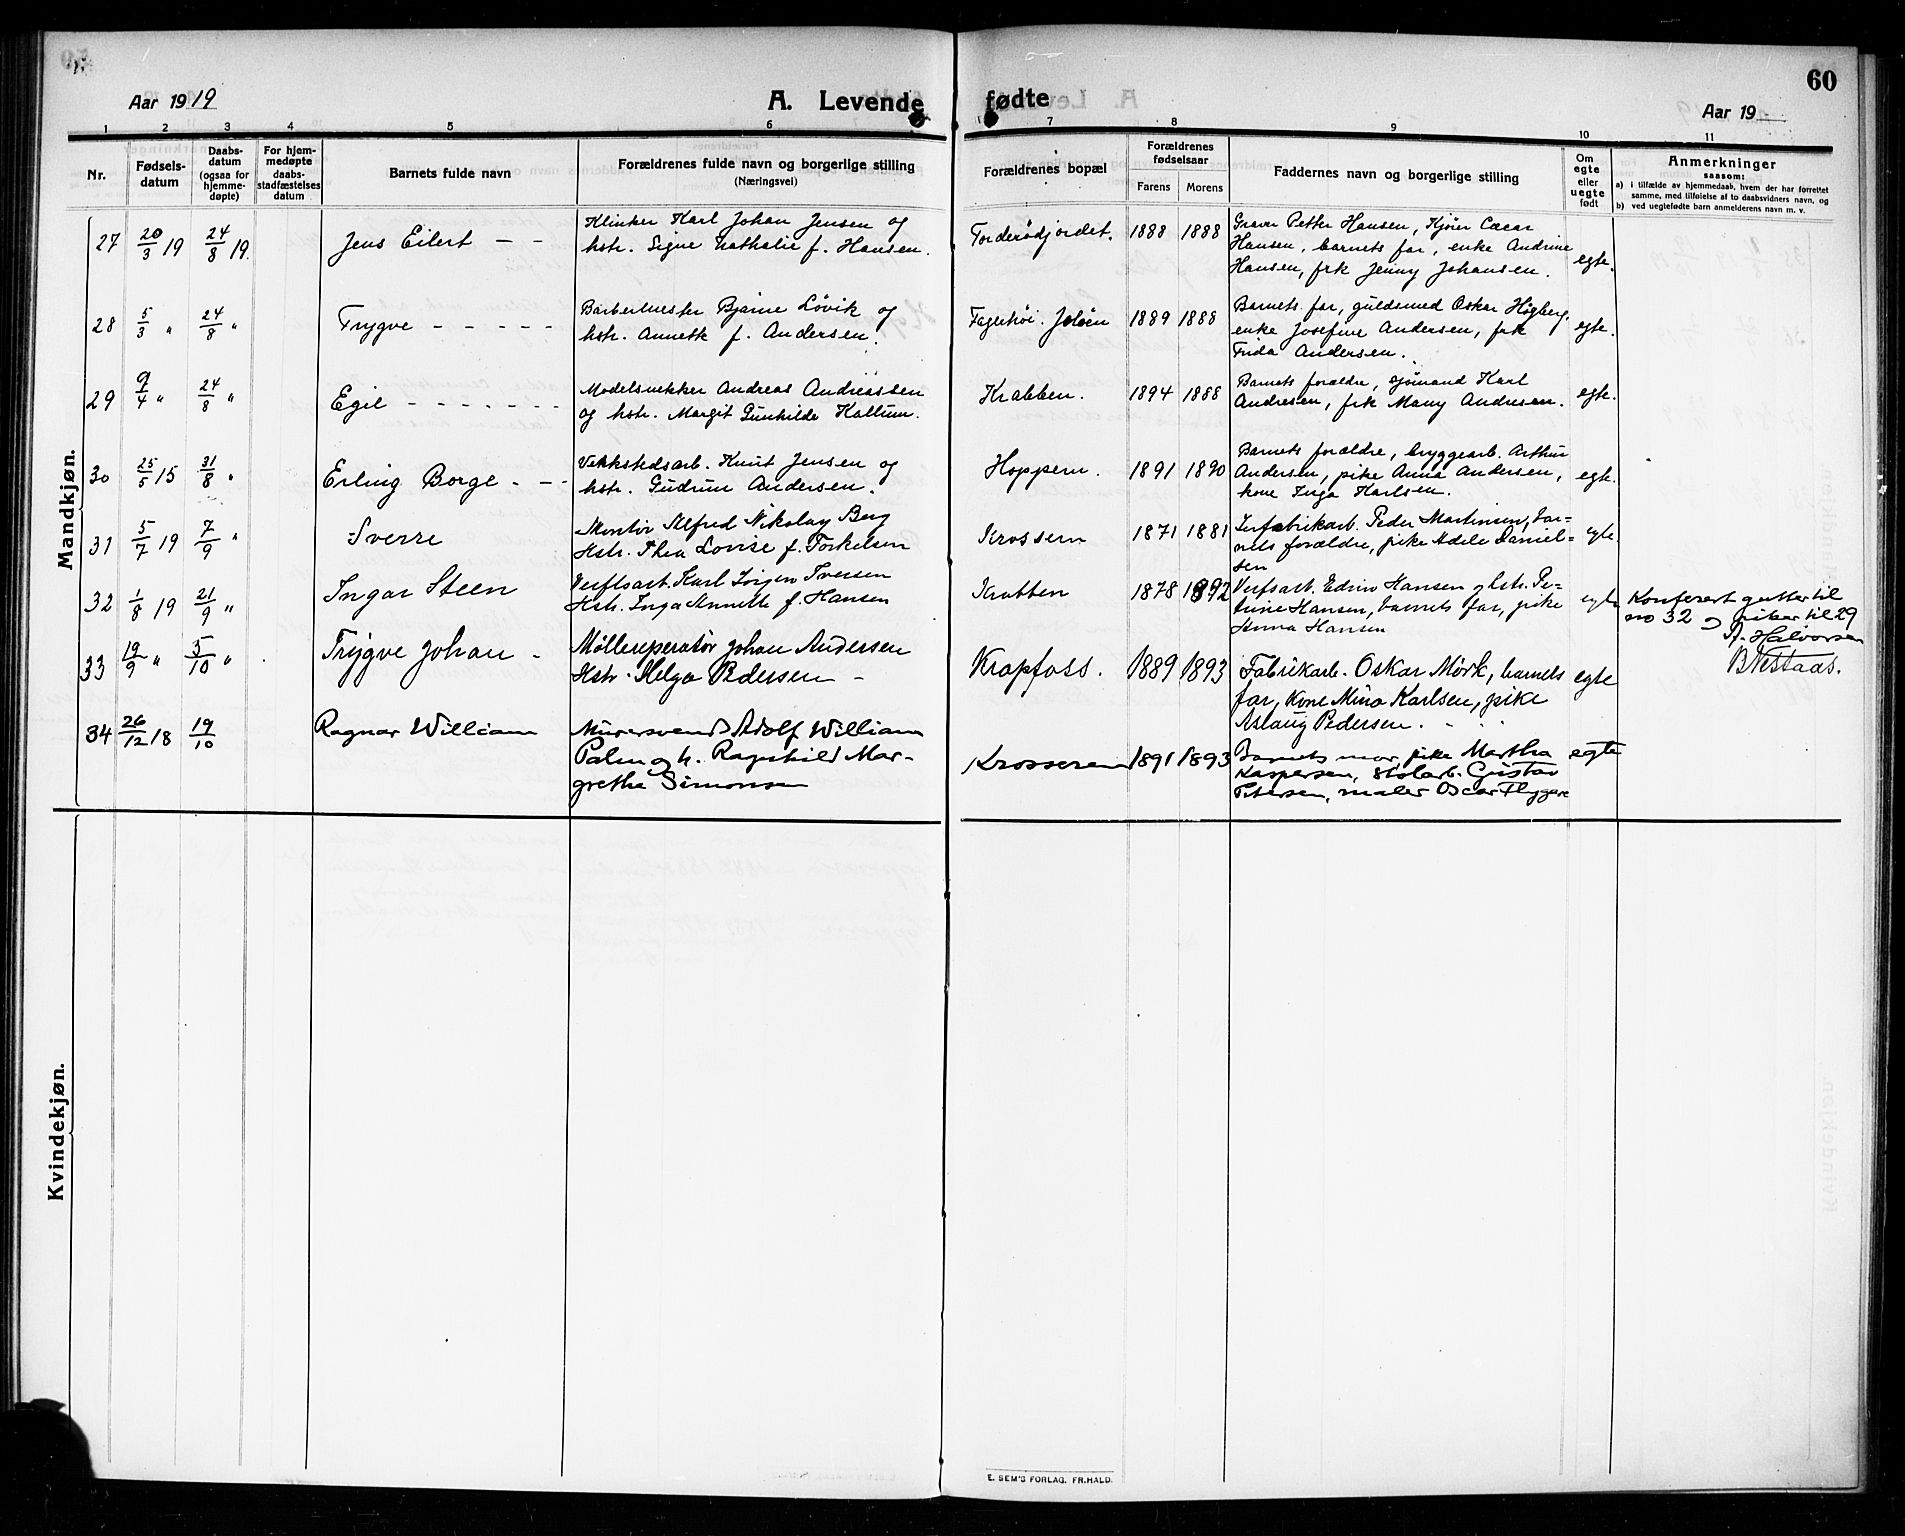 Aar 1919
A. Levende fødte
60
Aar 19
1 2 3 4 5 6 7 8 9 10 11
Nr.
Fødsels-
datum
Daabs-
datum
(ogsaa for
hjemme-
døpte)
For hjem-
medøpte
daabs-
stadfæstelses
datum
Barnets fulde navn
Forældrenes fulde navn og borgerlige stilling
(Næringsvei)
Forældrenes bopæl
Forældrenes
fødselsaar
Farens Morens
Faddernes navn og borgerlige stilling
Om
egte
eller
uegte
født
Anmerkninger
saasom:
a) i tilfælde av hjemmedaab, hvem der har forrettet
samme, med tilføielse af to daabsvidners navn, og
b) ved uegtefødte barn anmelderens navn m. v.
Mandkjøn.
27 20/3 19 24/8 19. Jens Eilert - -
Klinker Karl Johan Jensen og
hstr. Signe Nathalie f. Hansen.
Torderødjordet. 1888 1888
Graver Petter Hansen, Kjører
Hansen, barnets far, enke Andrine
Hansen, frk Jenny Johansen.
egte.
28 5/3 " 24/8 " Trygve - - - - -
Barbermester Bjarne Løvik og
hstr. Annette f. Andersen.
Fagerhøi. Jeløen 1889 1888
Barnets far, guldsmed Oskar Høgberg,
enke Josefine Andersen, frk
Frida Andersen.
egte.
29 9/4 " 24/8 " Egil - - - - - - -
Modelsnekker Andreas Andreassen
og hstr. Margit Gunhilde Kallum.
Krabben. 1894 1888
Barnets forældre, sjømand Karl
Andresen, frk Many Andresen.
egte.
30 25/5 15 31/8 " Erling Borge - - -
Verkstedsarb. Knut Jensen og
hstr. Gudrun Andersen.
Hoppern. 1891 1890
Barnets forældre, bryggearb. Arthur
Andersen, pike Anna Andersen,
kone Inga Karlsen.
egte.
31 5/7 19 7/9 " Sverre
Montør Alfred Nikolay Berg
Hstr. Thea Lovise f. Torkelsen
Krossern 1871 1881
Peder Martinsen, bar=
nets forældre, pike Adele Daniel=
sen
egte
32 1/8 19 21/9 " Ingar Steen
Verftsarb. Karl Jørgen Iversen
Hstr. Inga Annette f. Hansen
Krabben 1878 1892
Verfsarb. Edvin Hansen og hstr. Pe-
trine Hansen, barnets far, pike
Anna Hansen
egte
Konferert gutter til
no 32 og piker til 29
A. Halvorsen
B Nestaas.
33 19/9 " 5/10 " Trygve Johan -
Mølleroperatør Johan Andersen
Hstr. Helga Pedersen -
Krapfoss. 1889 1893
Fabrikarb. Oskar Mørk, barnets
far, Kone Mina Karlsen, pike
Aslaug Pedersen.
egte
34 26/12 18 19/10 Ragnar William
Murersvend Adolf William
Palm og h. Ragnhild Mar-
grethe Simonsen
Krosseren 1891 1893
Barnets mor, pike Martha
Kaspersen, stolarb. Gustav
Petersen, maler Oscar Flyggare
egte
Kvindekjøn.
E. SEM'S FORLAG. FR.HALD.